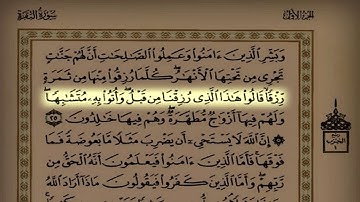 الجزء الأول
سورة البقرة
وَبَشِّرِ الَّذِينَ ءَامَنُوا وَعَمِلُوا الصَّالِحَاتِ أَنَّ لَهُمْ جَنَّاتٍ
تَجْرِي مِن تَحْتِهَا الْأَنْهَارُ كُلَّمَا رُزِقُوا مِنْهَا مِن ثَمَرَةٍ
رِّزْقًا قَالُوا هَٰذَا الَّذِي رُزِقْنَا مِن قَبْلُ وَأُتُوا بِهِ مُتَشَابِهًا
وَلَهُمْ فِيهَا أَزْوَاجٌ مُّطَهَّرَةٌ وَهُمْ فِيهَا خَالِدُونَ ٢٥
إِنَّ اللَّهَ لَا يَسْتَحْيِي أَن يَضْرِبَ مَثَلًا مَّا بَعُوضَةً فَمَا
فَوْقَهَا فَأَمَّا الَّذِينَ ءَامَنُوا فَيَعْلَمُونَ أَنَّهُ الْحَقُّ مِن
رَّبِّهِمْ وَأَمَّا الَّذِينَ كَفَرُوا فَيَقُولُونَ مَاذَا أَرَادَ اللَّهُ